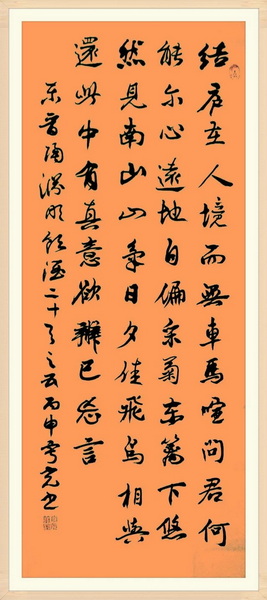 结庐在人境而无車馬喧问君何
能尔心遠地自偏采菊东篱下悠
然見南山山氣日夕佳飛鸟相與
還此中有真意欲辨已忘言
东晋陶渊明饮酒二十首之五丙申